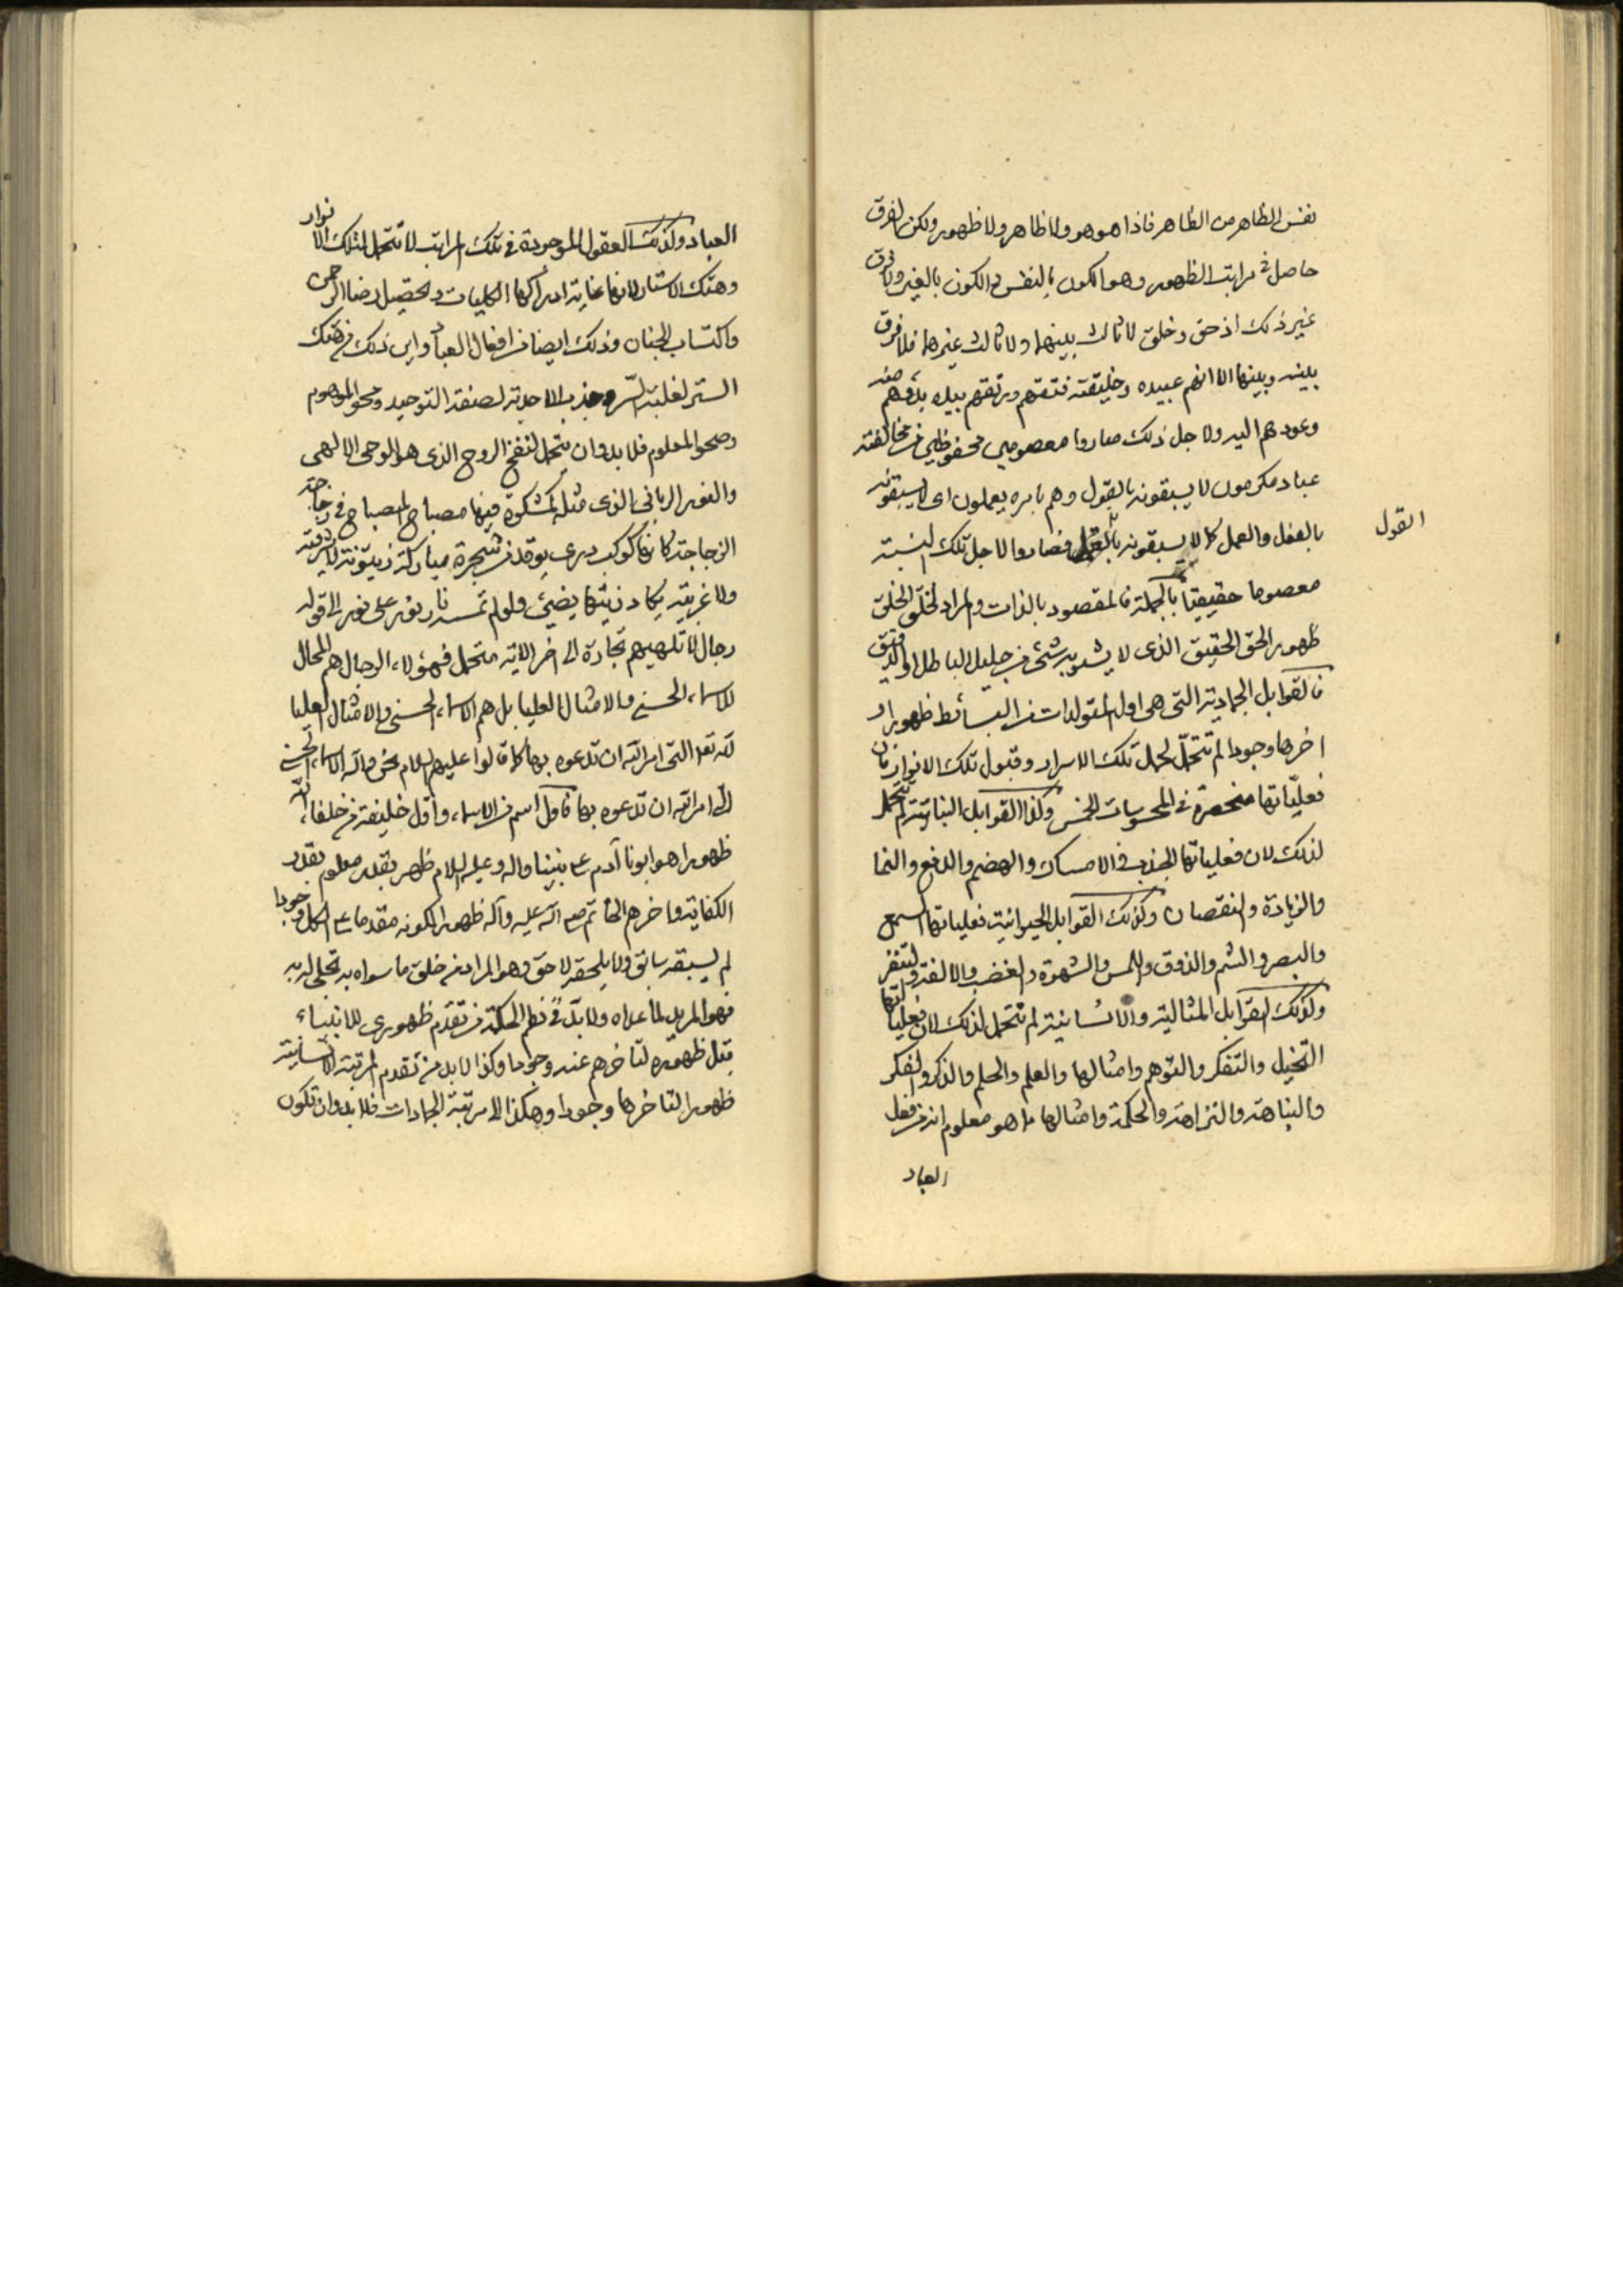 نفس الظاهر من الظاهر فاذا هو هو ولا ظاهر ولا ظهور ولكن الفرق
حاصل في مراتب الظهور وهو الكون بالنفس والكون بالغير ولا فرق
غير ذلك اذ حق وخلق لا ثالث بينهما ولا ثالث غيرهما فلا فرق
بينه وبينها الا انهم عبيده وخليقته فتقهم ورتقهم بيده بدؤهم منه
وعودهم اليه ولاجل ذلك صاروا معصومين محفوظين من مخالفته
عباد مكرمون لا يسبقونه بالقول وهم بامره يعملون اى لا يسبقونه
بالفعل والعمل كما لا يسبقونه بالقول فصاروا لاجل تلك النسبة
القول
معصوما حقيقيّا بالجملة فالمقصود بالذات والمراد لخلق الخلق
ظهور الحق الحقيق الذى لا يشوبه شئ من جليل الباطل او الدقيق
فالقوابل الجمادية التى هى اول المتولدات من البسائط ظهورا و
اخرها وجودا لم تتحمّل لحمل تلك الاسرار وقبول تلك الانوار فان
فعليّاتها منحصرة فى المحسوسات الخمس وكذا القوابل النباتية لم تتحمل
لذلك لان فعلياتها الجذب و الامساك والهضم والدفع والنما
والزيادة والنقصان وكذلك القوابل الحيوانية فعلياتها السمع
والبصر والشم والذوق واللمس والشهوة والغضب والالفة والتنفر
وكذلك القوابل المثالية والانسانية لم تتحمل لذلك لان فعلياتها
التخيل والتفكر والتوهم وامثالها والعلم والحلم والذكر والفكر
والنباهة والنزاهة والحكمة وامثالها ما هو معلوم انه من فعل
العباد
العباد وكذلك العقول الموجودة فى تلك المراتب لا تتحمل لتلك الانوار
وهتك الاستار لانها غاية ادراكها الكليات وتحصيل رضا الرحمن
واكتساب الجنان وذلك ايضا من افعال العباد واين ذلك من هتك
الستر لغلبة السّر وجذب الاحدية لصفة التوحيد ومحو الموهوم
وصحو المعلوم فلا بد وان يتحمل لنفخ الروح الذى هو الوحى الالهى
والنور الربانى الذى مثله كمشكوة فيها مصباح المصباح فى زجاجة
الزجاجة كانها كوكب درى يوقد من شجرة مباركة زيتونة لا شرقية
ولا غربية يكاد زيتها يضيئ ولو لم تمسسه نار نور على نور الى قوله
رجال لا تلهيهم تجارة الى اخر الاية متحمل فهؤلاء الرجال هم المحال
للاسماء الحسنى والامثال العليا بل هم الاسماء الحسنى والامثال العليا
لله تعالى التى امر الله ان تدعوه بها كما قالوا عليهم السلام نحن والله الاسماء الحسنى
التى امر الله ان تدعوه بها فاول اسم من الاسماء واول خليفة من خلفاء الله
ظهورا هو ابونا آدم على نبينا واله وعليه السلام ظهر بقدر معلوم بقدر
الكفاية واخرهم الخاتم صلى الله عليه وآله ظهورا لكونه مقدما على الكل وجودا
لم يسبقه سابق ولا يلحقه لاحق وهو المراد من خلق ما سواه به تجلى له به
فهو المربى لما عداه ولا بدّ فى نظم الحكمة من تقدّم ظهورى للانبياء
قبل ظهوره لتاخرهم عنه وجودا وكذا لا بد من تقدم المرتبة الانسانية
ظهورا لتاخرها وجودا وهكذا الى مرتبة الجمادات فلا بد وان تكون